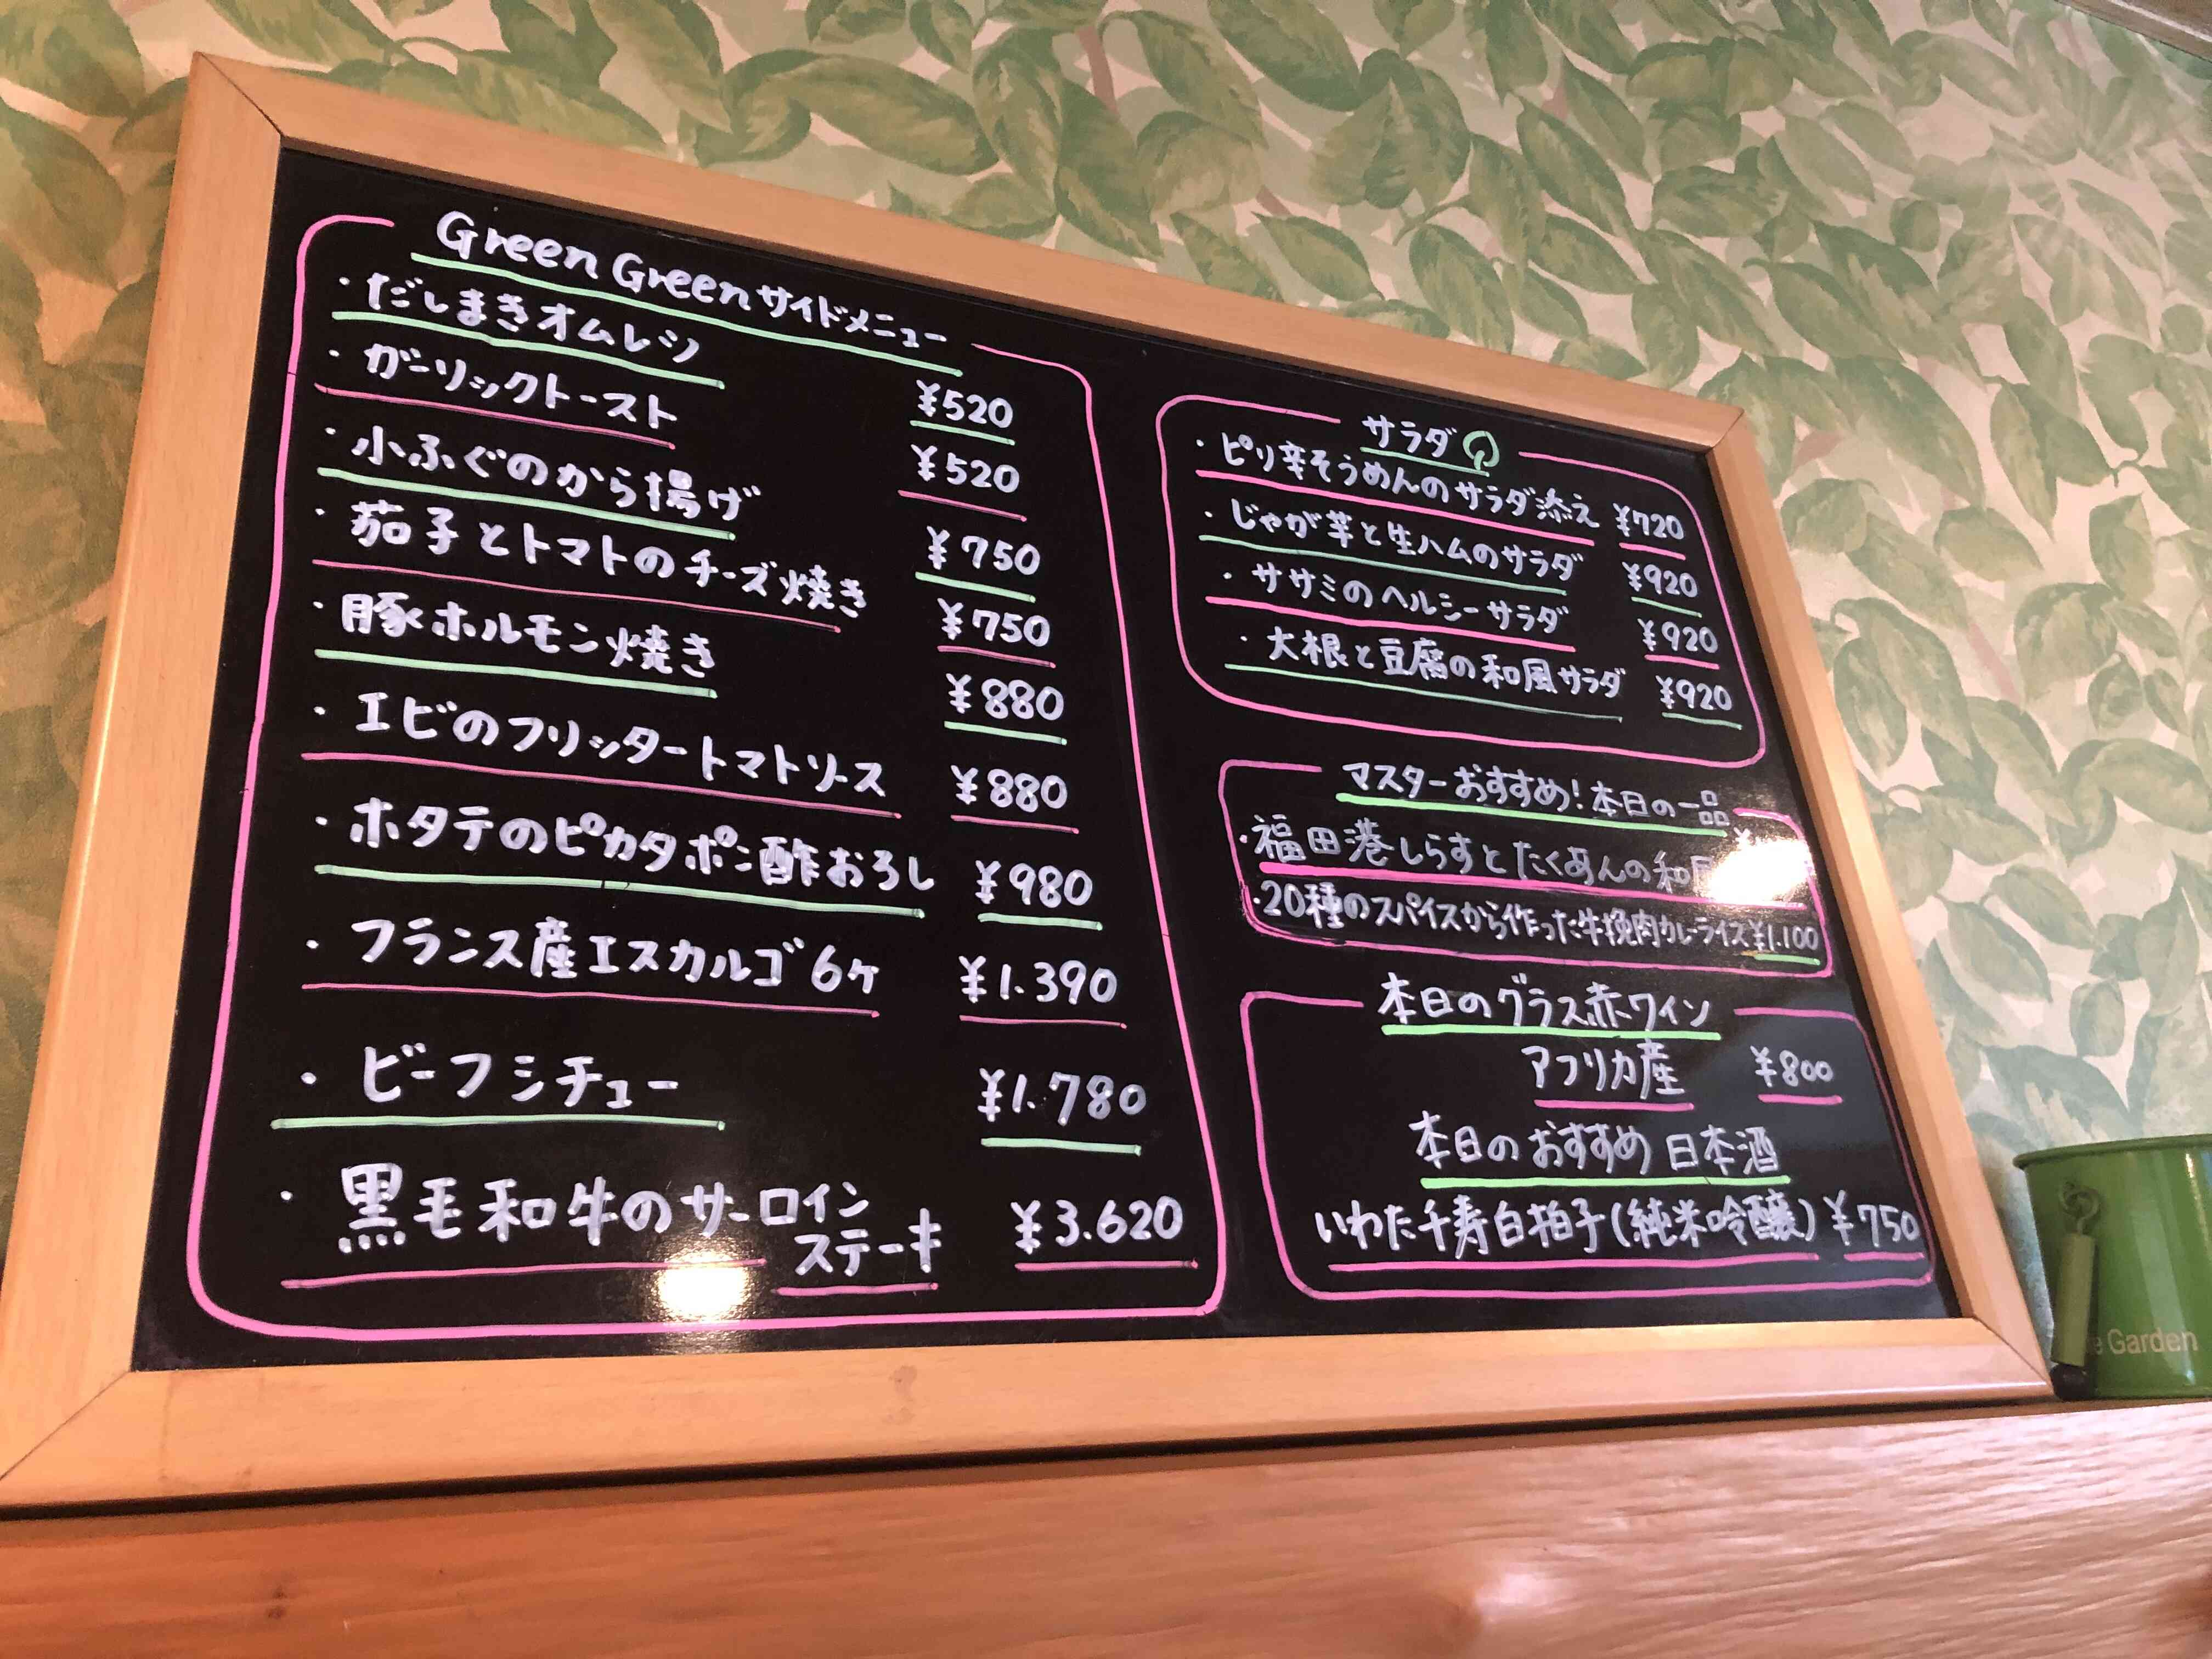 Green Green サイドメニュー
・だしまきオムレツ ¥520
・ガーリックトースト ¥520
・小ふぐのから揚げ ¥750
・茄子とトマトのチーズ焼き ¥750
・豚ホルモン焼き ¥880
・エビのフリッタートマトソース ¥880
・ホタテのピカタポン酢おろし ¥980
・フランス産エスカルゴ6ケ ¥1.390
・ビーフシチュー ¥1.780
・黒毛和牛のサーロイン
ステーキ ¥3.620
サラダ
・ピリ辛そうめんのサラダ添え ¥720
・じゃが芋と生ハムのサラダ ¥920
・ササミのヘルシーサラダ ¥920
・大根と豆腐の和風サラダ ¥920
マスターおすすめ!本日の一品
・福田港しらすとたくあんの和 ¥
・20種のスパイスから作った牛挽肉カレーライス ¥1.100
本日のグラス赤ワイン
アフリカ産 ¥800
本日のおすすめ日本酒
いわた千寿白拍子(純米吟醸) ¥750
Garden